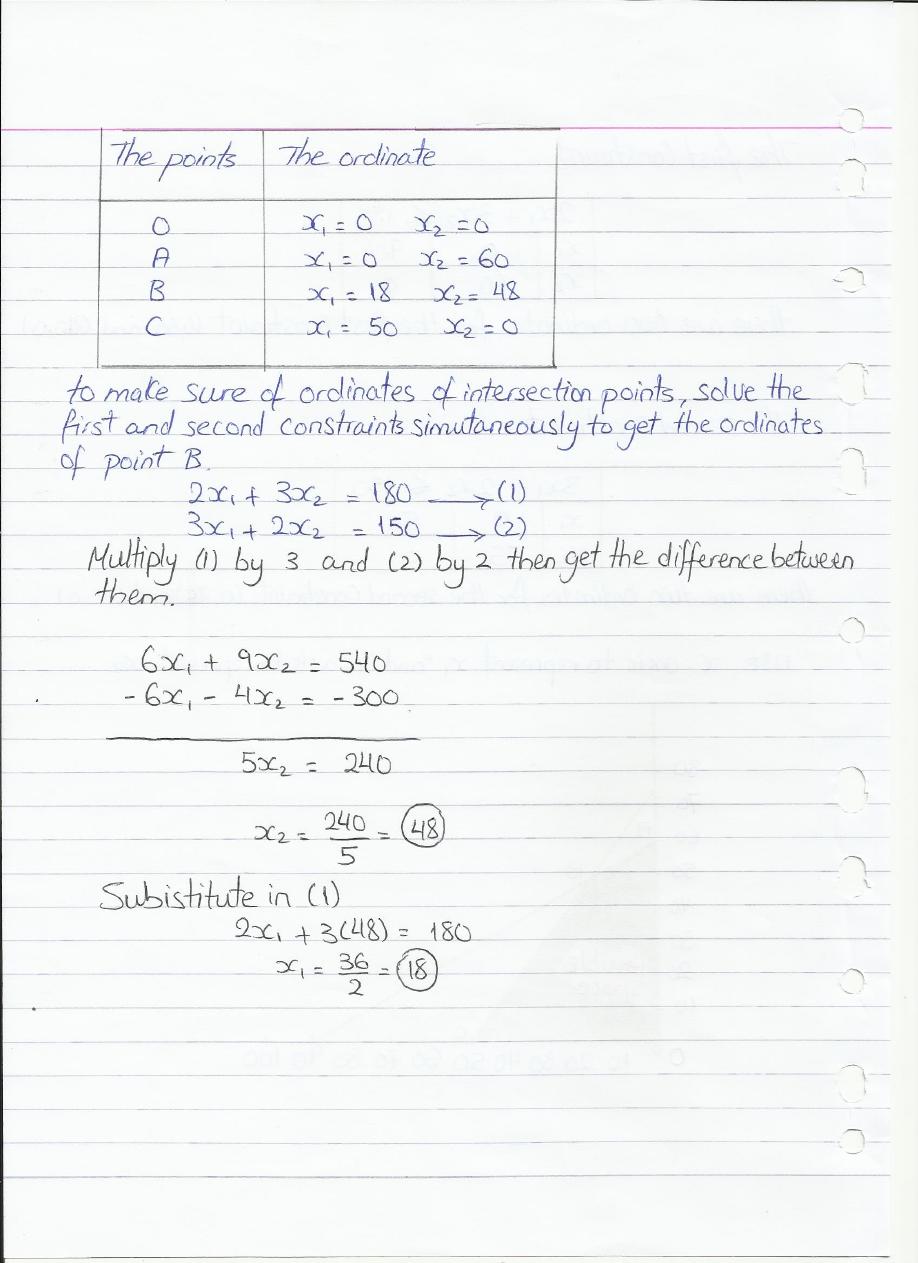 The points The ordinate
O x₁ = 0 x₂ = 0
A x₁ = 0 x₂ = 60
B x₁ = 18 x₂ = 48
C x₁ = 50 x₂ = 0
to make sure of ordinates of intersection points, solve the
first and second constraints simutaneously to get the ordinates
of point B.
2x₁ + 3x₂ = 180 → (1)
3x₁ + 2x₂ = 150 → (2)
Multiply (1) by 3 and (2) by 2 then get the difference between
them.
6x₁ + 9x₂ = 540
- 6x₁ - 4x₂ = - 300
5x₂ = 240
x₂ = 240/5 = 48
Subistitute in (1)
2x₁ + 3(48) = 180
x₁ = 36/2 = 18